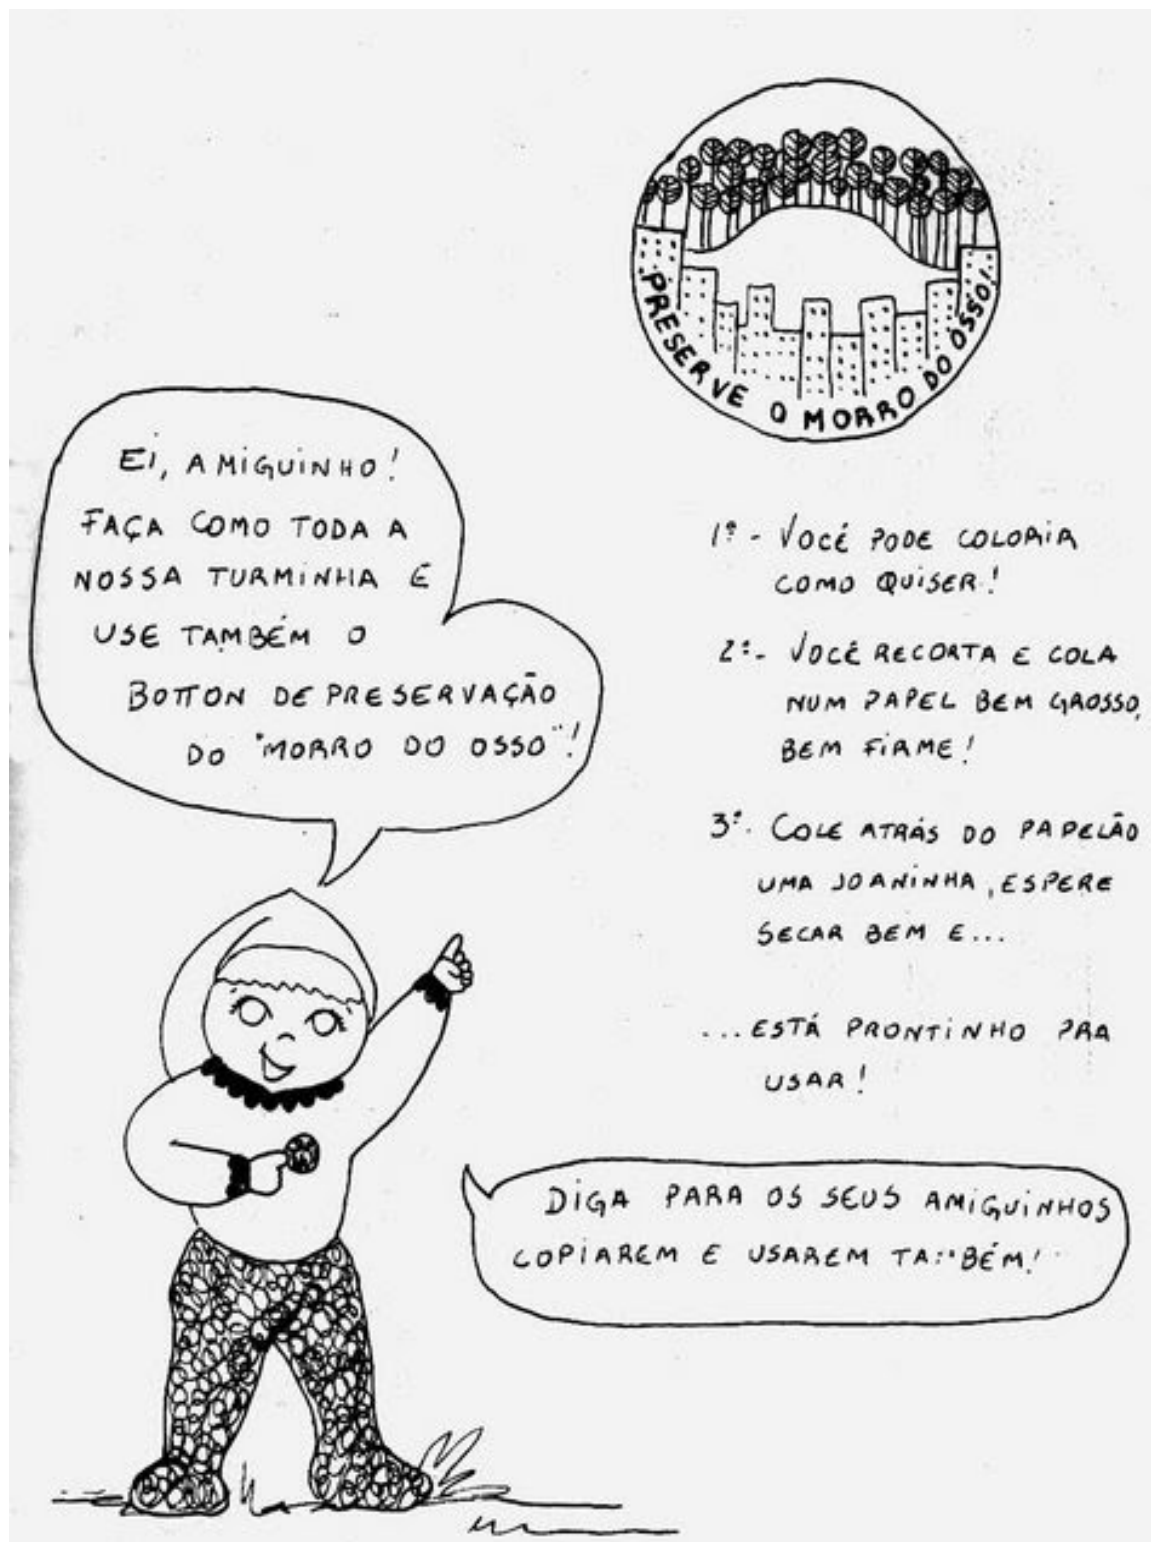 PRESERVE O MORRO DO OSSO!
EI, AMIGUINHO!
FAÇA COMO TODA A
NOSSA TURMINHA E
USE TAMBÉM O
BOTTON DE PRESERVAÇÃO
DO "MORRO DO OSSO"!
1º - VOCÊ PODE COLORIR
COMO QUISER!
2º - VOCÊ RECORTA E COLA
NUM PAPEL BEM GROSSO,
BEM FIRME!
3º. COLE ATRÁS DO PAPELÃO
UMA JOANINHA, ESPERE
SECAR BEM E...
...ESTÁ PRONTINHO PRA
USAR!
DIGA PARA OS SEUS AMIGUINHOS
COPIAREM E USAREM TAMBÉM!